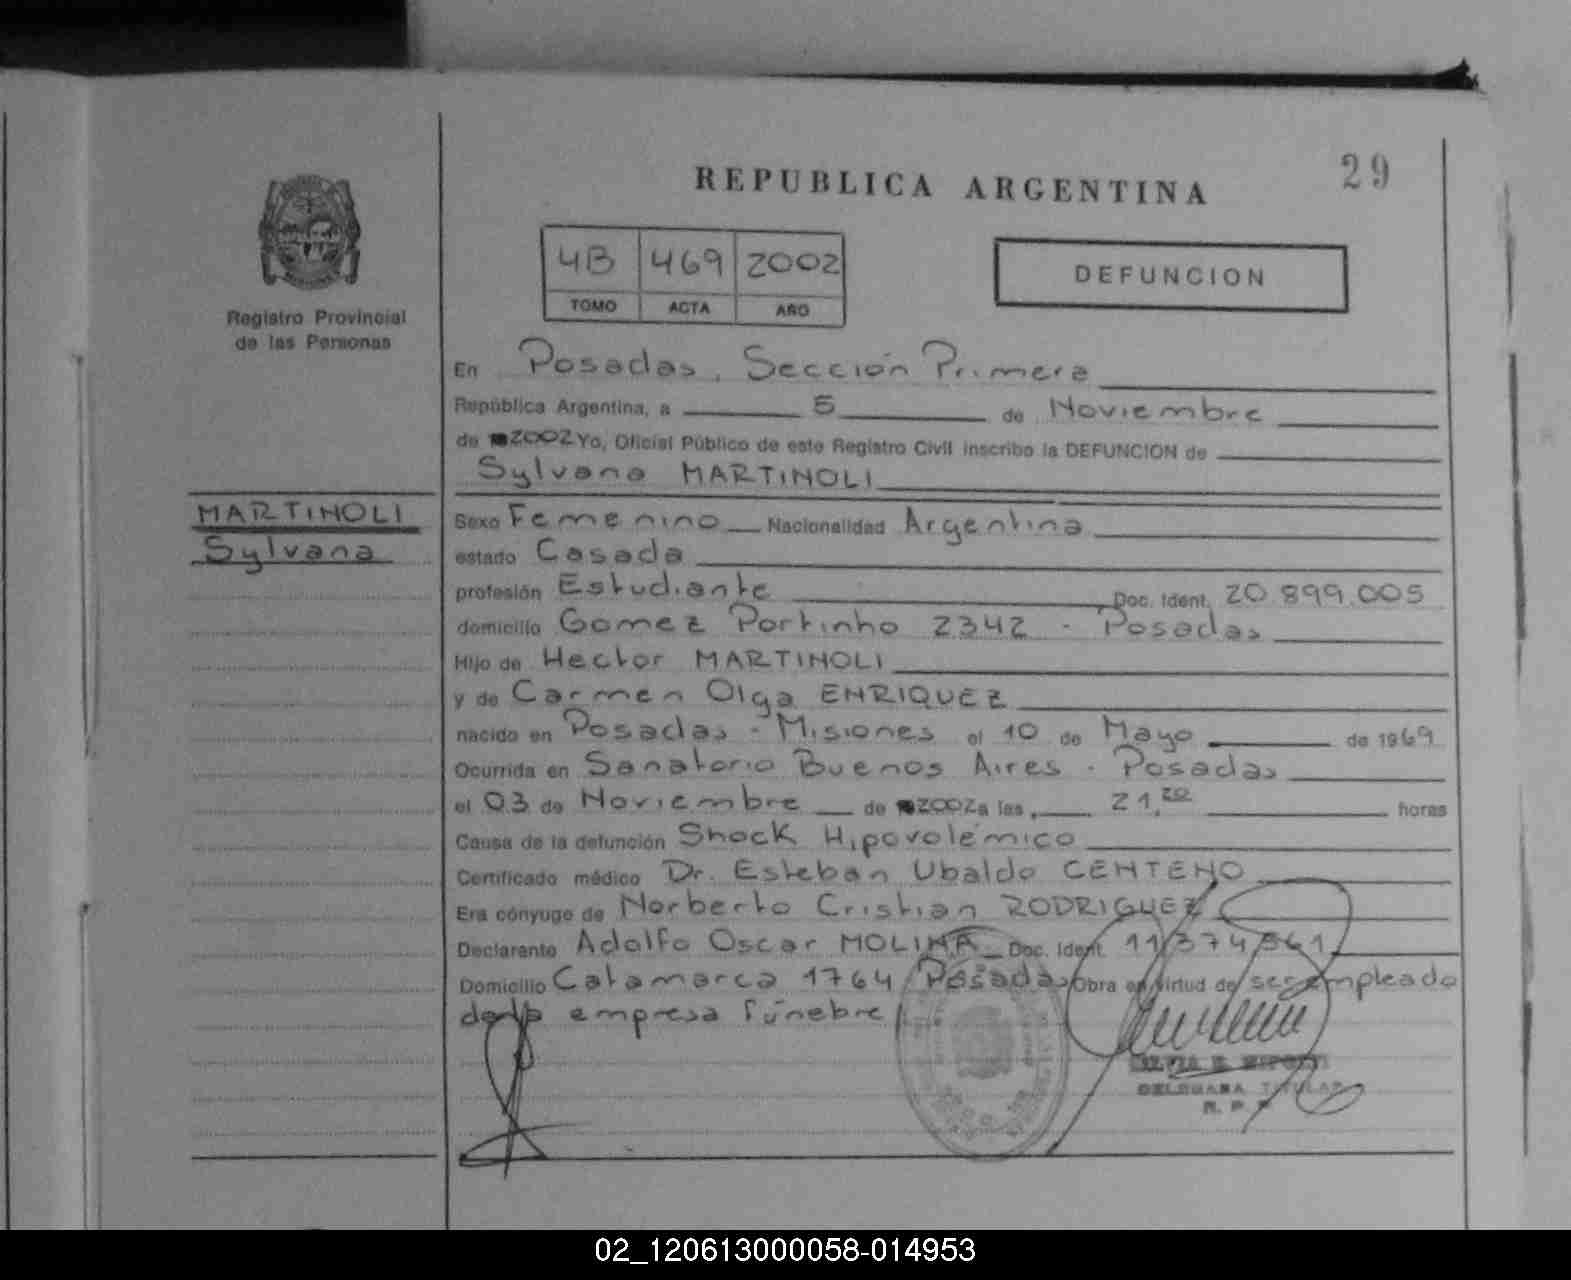 REPUBLICA ARGENTINA
29
4B 469 2002
TOMO ACTA AÑO
DEFUNCION
Registro Provincial
de las Personas
En Posadas, Sección Primera
República Argentina, a 5 de Noviembre
de 2002 Yo, Oficial Público de este Registro Civil inscribo la DEFUNCION de
Sylvana MARTINOLI
MARTINOLI
Sylvana
Sexo Femenino Nacionalidad Argentina
estado Casada
profesión Estudiante Doc. Ident. 20.899.005
domicilio Gomez Portinho 2342 - Posadas
Hijo de Hector MARTINOLI
y de Carmen Olga ENRIQUEZ
nacido en Posadas - Misiones el 10 de Mayo de 1969
Ocurrida en Sanatorio Buenos Aires - Posadas
el 03 de Noviembre de 2002 a las, 21,20 horas
Causa de la defunción Shock Hipovolémico
Certificado médico Dr. Esteban Ubaldo CENTENO
Era cónyuge de Norberto Cristian RODRIGUEZ
Declarante Adolfo Oscar MOLINA Doc. Ident. 11.374.561
Domicilio Catamarca 1764 Posadas Obra en virtud de ser empleado
de la empresa fúnebre
DELEGADA TITULAR
R. P. P.
02_120613000058-014953